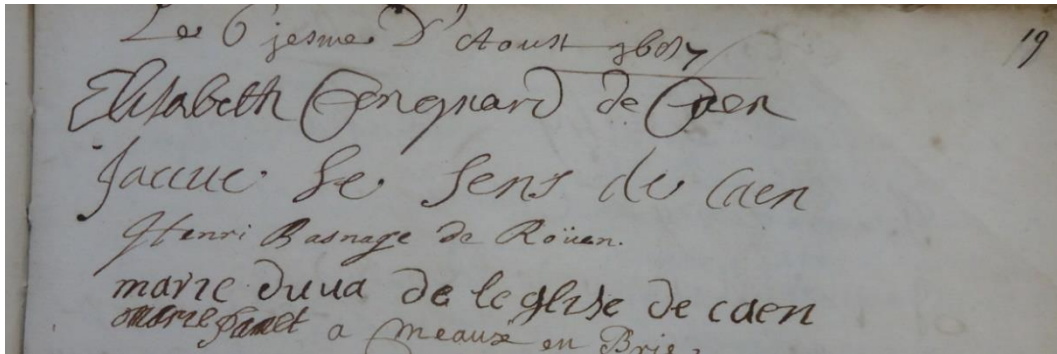 Le 6 jesme D'Aoust 1687
19
Elisabeth Gongnard de Caen
Jaccue Le Sens de Caen
Henri Basnage de Roüen.
marie duva de leglise de caen
marie a meaux en Brie